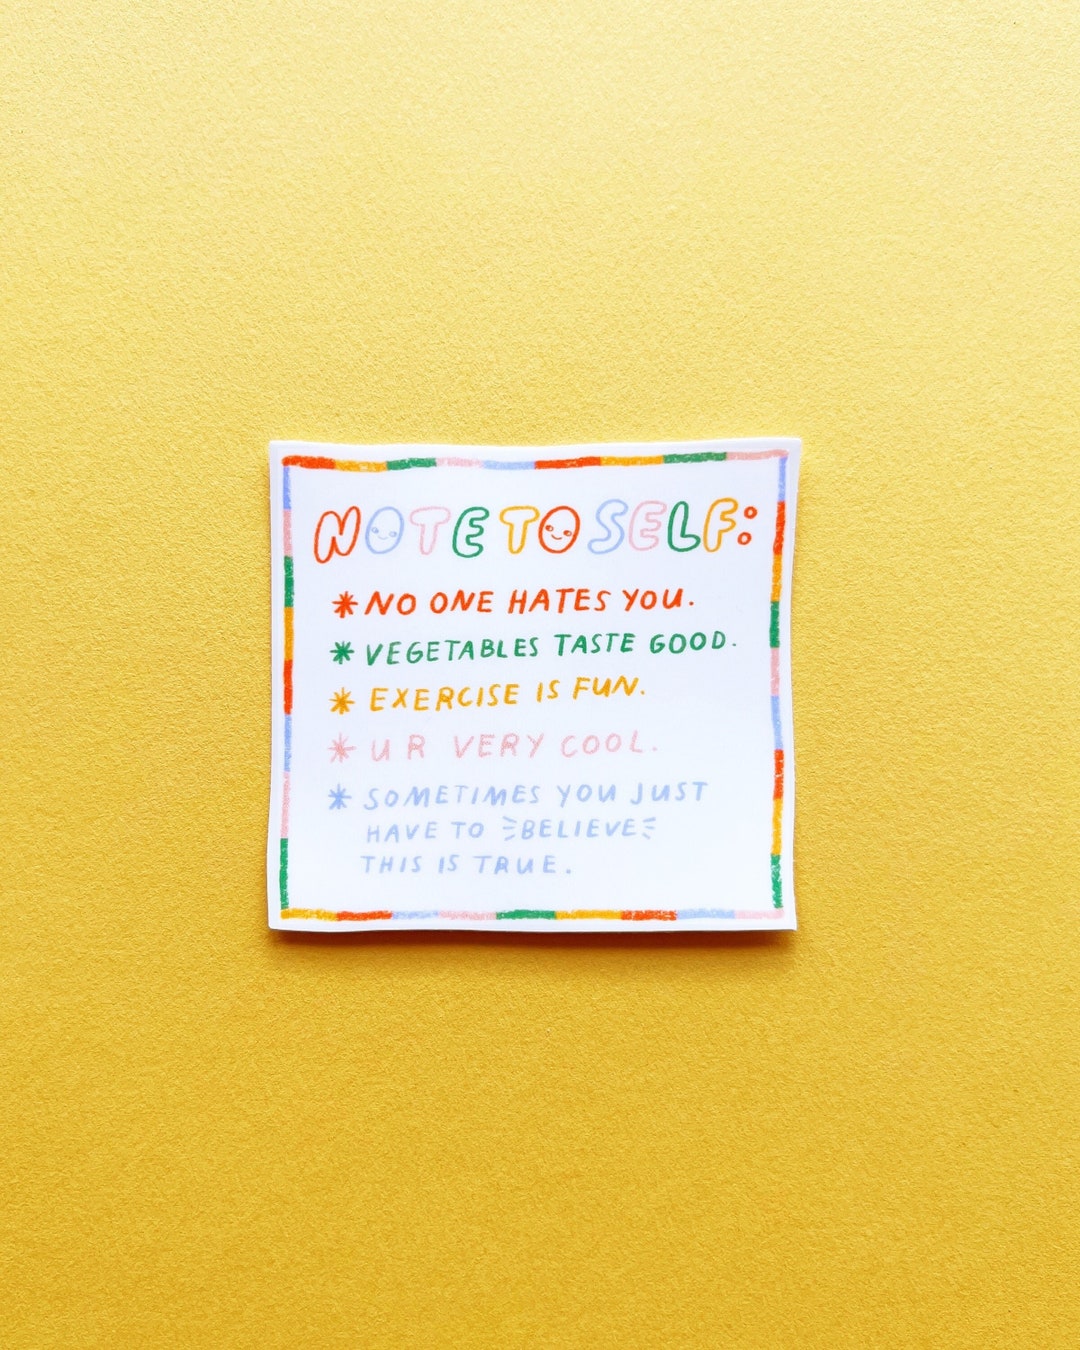 NOTE TO SELF:
* NO ONE HATES YOU.
* VEGETABLES TASTE GOOD.
* EXERCISE IS FUN.
* U R VERY COOL.
* SOMETIMES YOU JUST
HAVE TO BELIEVE
THIS IS TRUE.